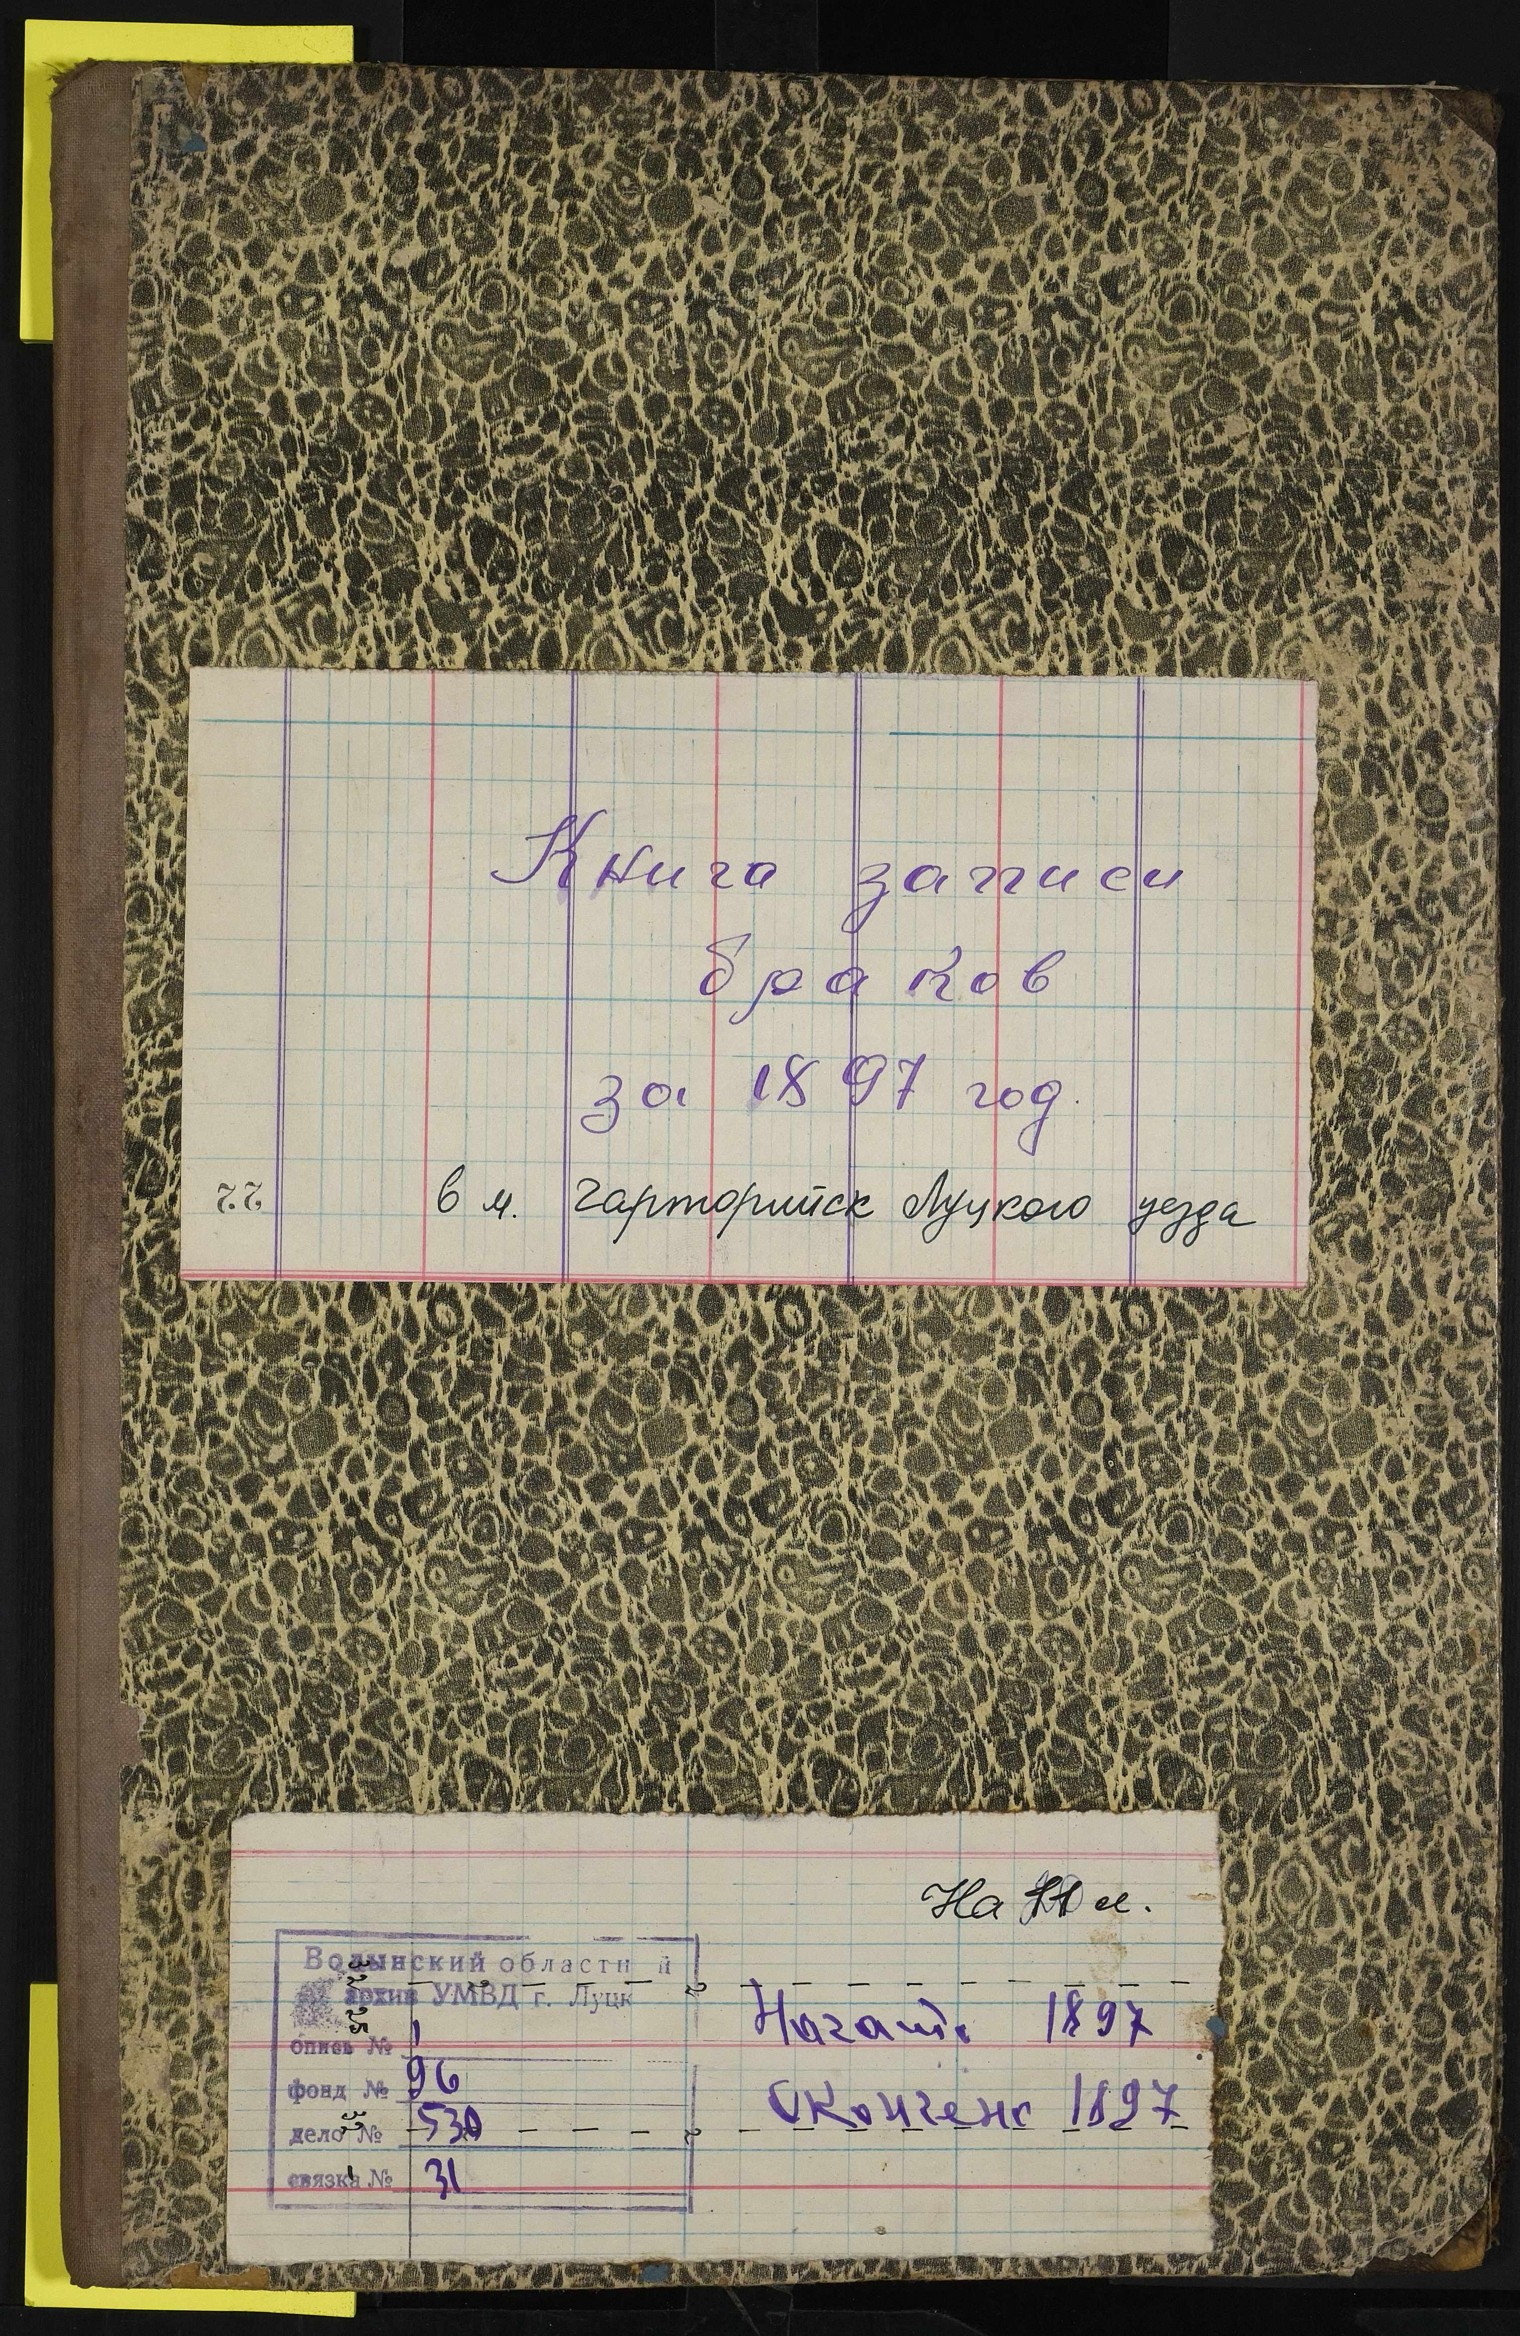 Книга записи
браков
за 1897 год.
в м. Чарторийск Луцкого уезда
22
На л.
Волынский областн й
архив УМВД г. Луцк
опись № 1
фонд № 96
дело № 530
связка № 31
Начато 1897
Окончено 1897